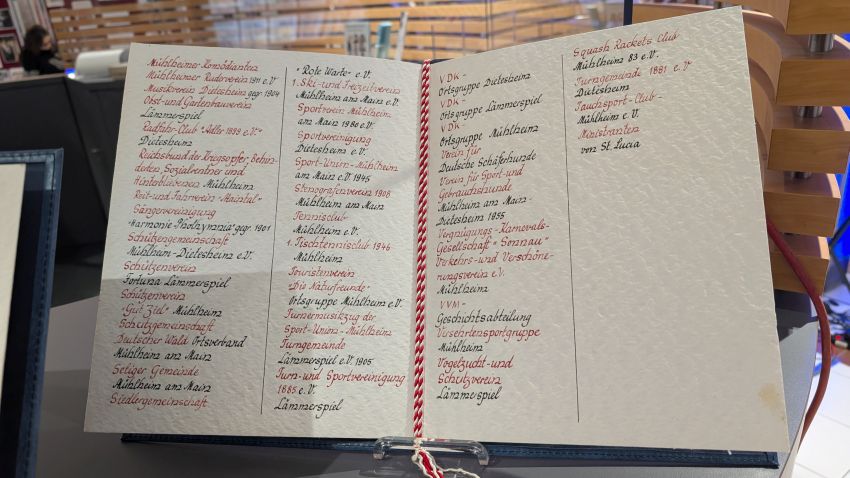 Mühlheimer Komödianten
Mühlheimer Ruderverein 1911 e.V.
Musikverein Dietesheim gegr. 1904
Obst- und Gartenbauverein
Lämmerspiel
Radfahr-Club "Adler 1899 e.V."
Dietesheim
Reichsbund der Kriegsopfer, Behin-
derten, Sozialrentner und
Hinterbliebenen Mühlheim
Reit- und Fahrverein "Maintal"
Sängervereinigung
"Harmonie Polhymnia" gegr. 1901
Schützengemeinschaft
Mühlheim-Dietesheim e.V.
Schützenverein
Fortuna Lämmerspiel
Schützenverein
"Gut Ziel" Mühlheim
Schutzgemeinschaft
Deutscher Wald Ortsverband
Mühlheim am Main
Setiger Gemeinde
Mühlheim am Main
Siedlergemeinschaft
"Rote Warte" e.V.
1. Ski- und Freizeitverein
Mühlheim am Main e.V.
Sportverein Mühlheim
am Main 1986 e.V.
Sportvereinigung
Dietesheim e.V.
Sport-Union-Mühlheim
am Main e.V. 1945
Stenografenverein 1908
Mühlheim am Main
Tennisclub
Mühlheim e.V.
1. Tischtennisclub 1946
Mühlheim
Touristenverein
"Die Naturfreunde"
Ortsgruppe Mühlheim e.V.
Turnermusikzug der
Sport-Union-Mühlheim
Turngemeinde
Lämmerspiel e.V. 1905
Turn- und Sportvereinigung
1885 e.V.
Lämmerspiel
VDK-
Ortsgruppe Dietesheim
VDK-
Ortsgruppe Lämmerspiel
VDK-
Ortsgruppe Mühlheim
Verein für
Deutsche Schäferhunde
Verein für Sport- und
Gebrauchshunde
Mühlheim am Main-
Dietesheim 1955
Vergnügungs-Karnevals-
Gesellschaft "Sonnau"
Verkehrs- und Verschöne-
rungsverein e.V.
Mühlheim
VVM-
Geschichtsabteilung
Versehrtensportgruppe
Mühlheim
Vogelzucht- und
Schutzverein
Lämmerspiel
Squash Rackets Club
Mühlheim 83 e.V.
Turngemeinde 1881 e.V.
Dietesheim
Tauchsport-Club-
Mühlheim e.V.
Ministranten
von St. Lucia